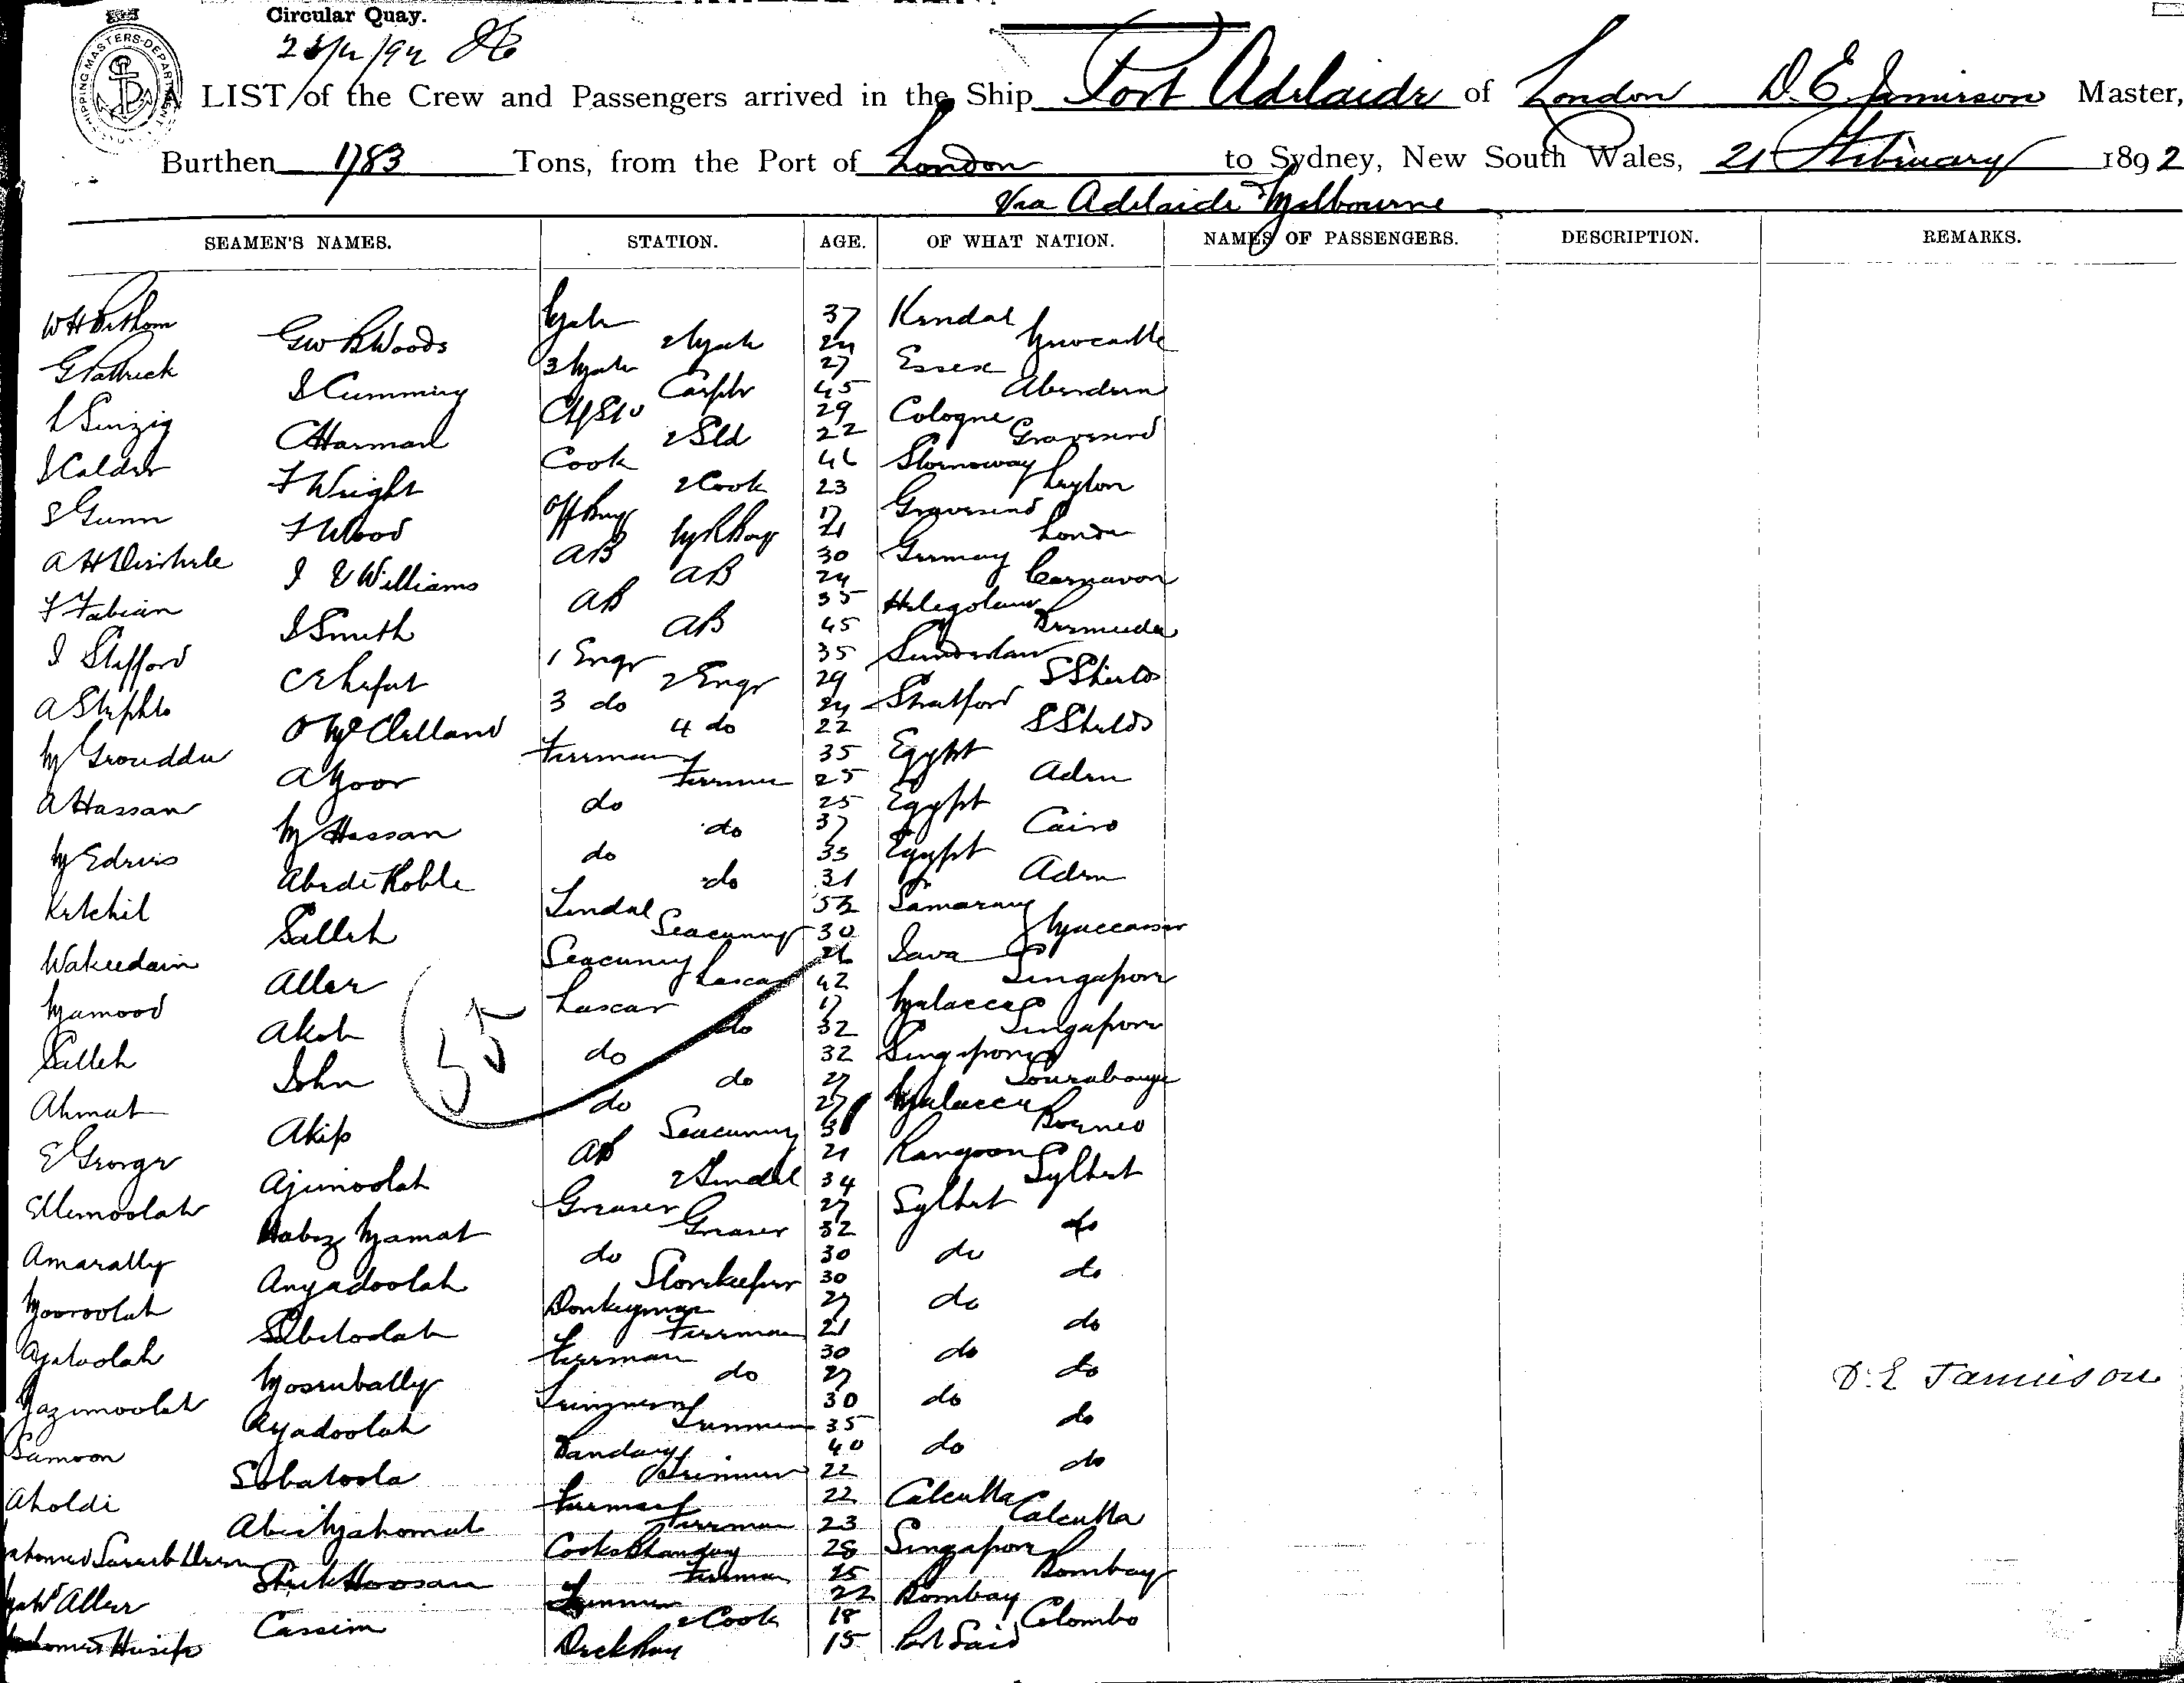 Circular Quay.
SHIPPING MASTERS-DEPARTMENT
A LIST of the Crew and Passengers arrived in the Ship Port Adelaide of London D. E Jamieson Master,
Burthen 1783 Tons, from the Port of London to Sydney, New South Wales, 21 February 1892
Via Adelaide & Melbourne
SEAMEN'S NAMES. STATION. AGE. OF WHAT NATION. NAMES OF PASSENGERS. DESCRIPTION. REMARKS.
37 Kendal
Geo B Woods 2 Mate 24 Newcastle
G Pattrick 3 Mate 27 Essex
J Cumming Carptr 45 Aberdeen
L Sinzig Chf Stw 29 Cologne
C Harman 2 Std 22 Gravesend
J Calder Cook 46 Stornoway
F Wright 2 Cook 23 Leyton
J Gunn 17 Gravesend
F Wood 21 London
AB 30 Germany
J E Williams AB 24 Carnavon
F Fabian AB 35 Heligoland
J Smith AB 45 Bermuda
J Stafford 1 Engr 35 Sunderland
2 Engr 29 S Shields
3 do 24 Stratford
McClelland 4 do 22 S Shields
Fireman 35 Egypt
A Noor Fireman 25 Aden
A Hassan do 25 Egypt
M Hassan do 37 Cairo
M Edris do 33 Egypt
Abede Roble do 31 Aden
Ketchil Tindal 53 Samarang
Salleh Seacunny 30 Maccassar
Wakeedain Seacunny 26 Java
Aller Lascar 42 Singapore
Mamood Lascar 17 Malacca
Akob do 32 Singapore
Salleh do 32 Singapore
John do 27 Sourabaya
Ahmat do 27 Malacca
Akip Seacunny Borneo
E George AB 21 Rangoon
Ajimoolah 2 Tindal 34 Sylhet
Ellemoolah Greaser 27 Sylhet
Habez Mamat Greaser 32 do
Amarally do 30 do
Anyadoolah Storekeeper 30 do
Nooroolah Donkeyman 27 do
Sabetoolah Fireman 21 do
Ajatoolah Fireman 30 do
Mosrubally do 27 do
Nazimoolah Trimmer 30 do
Ayadoolah Trimmer 35 do
Samoon Bandary 40 do
Sobatoola Trimmer 22 do
Aholdi Fireman 22 Calcutta
Fireman 23 Calcutta
Cooks Bhandary 28 Singapore
Sheik Hoosan Fireman 25 Bombay
Aller Trimmer 22 Bombay
Cassim 2 Cook 18 Colombo
Deck Boy 15 Port Said
55
D. E Jamieson